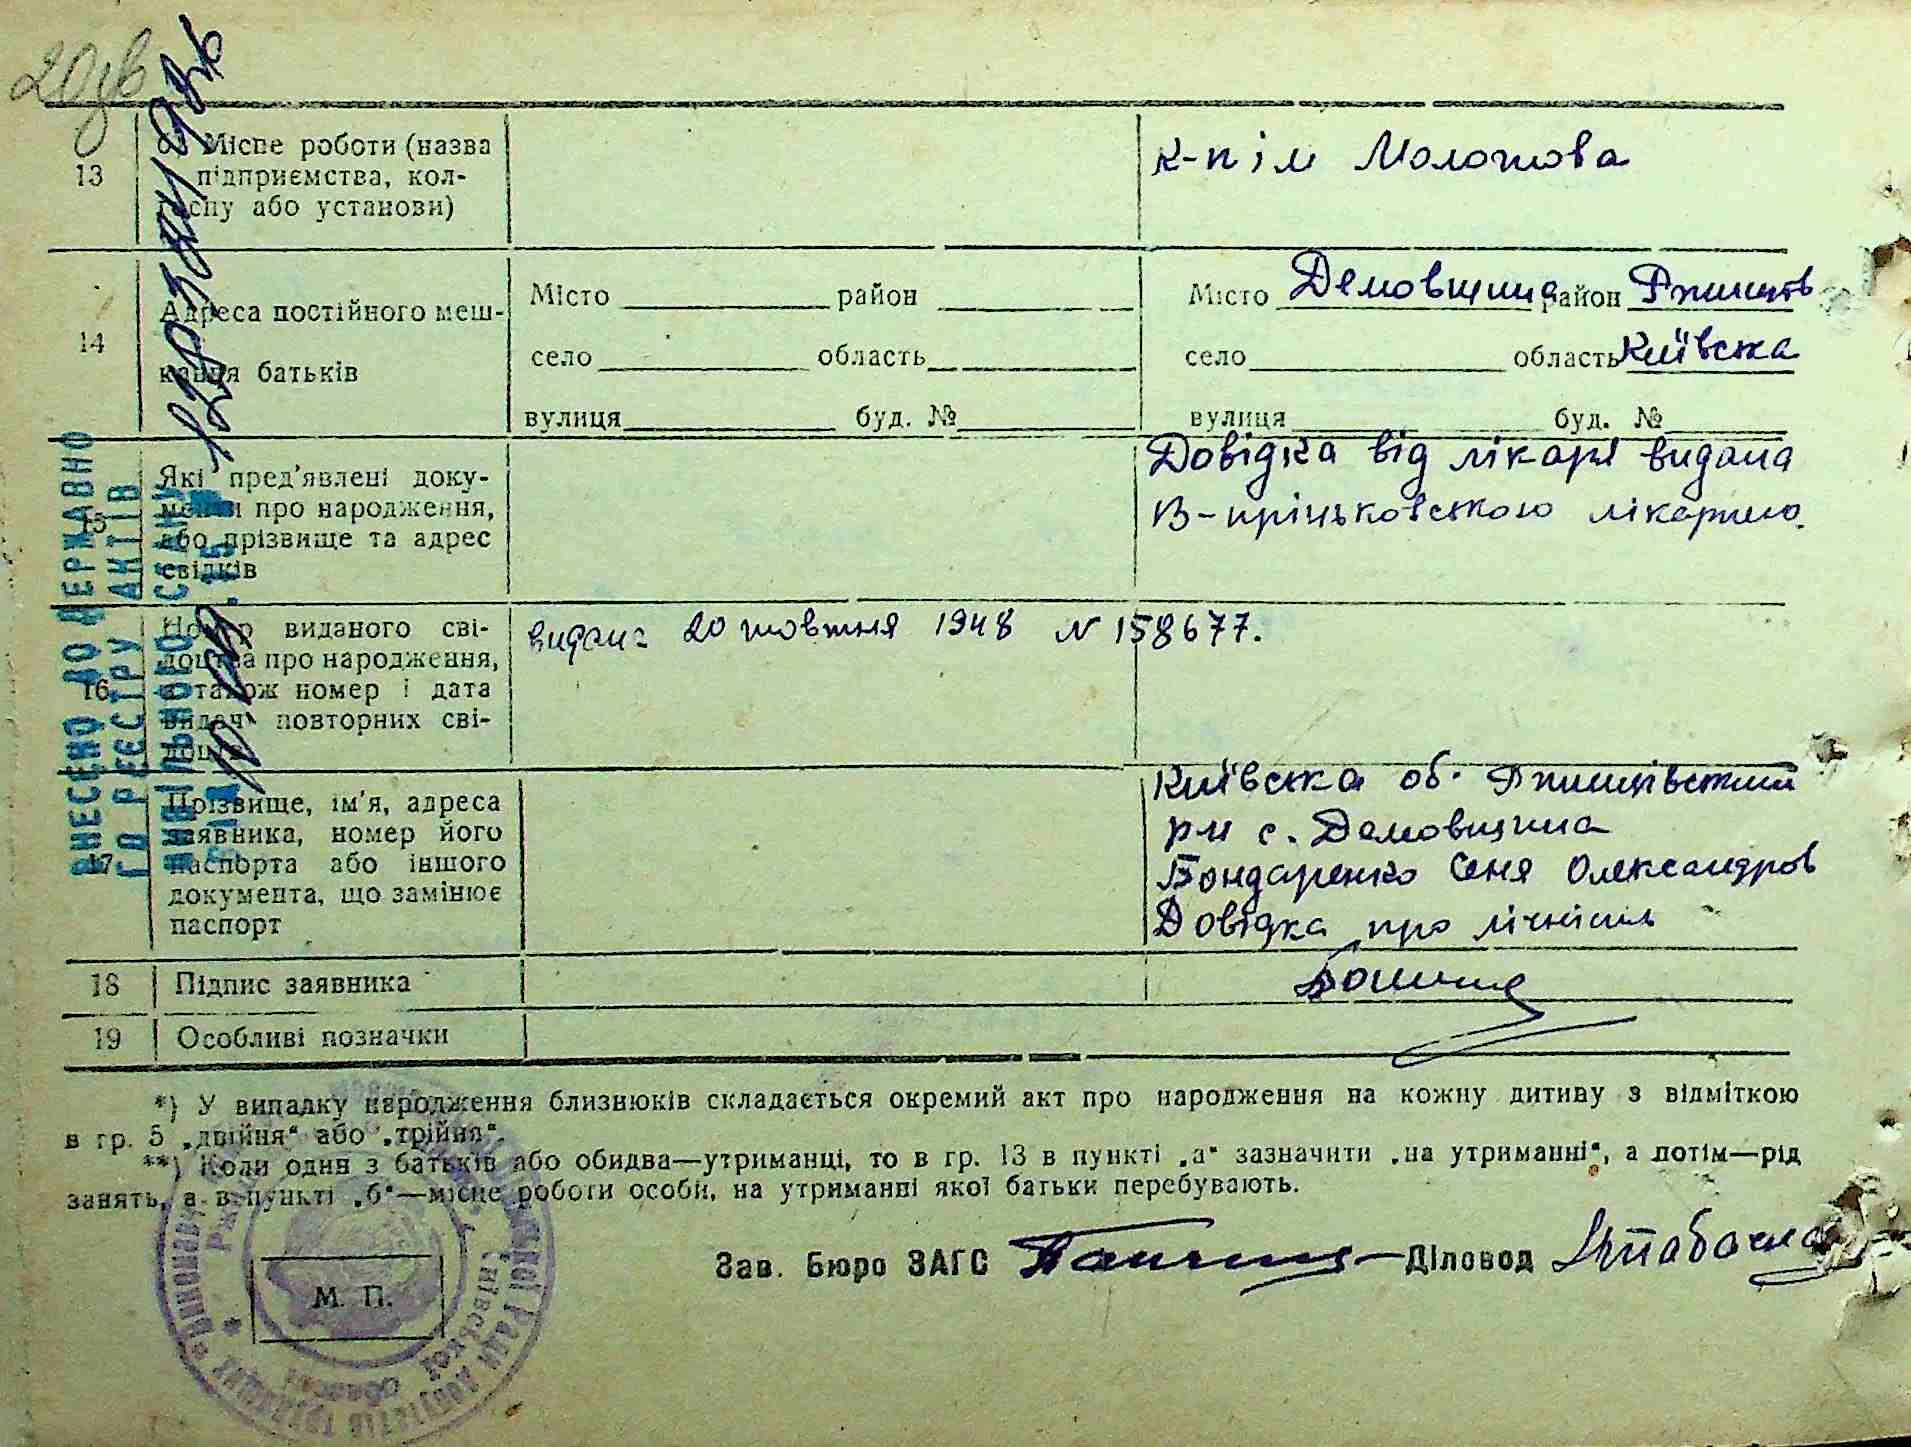 20
13
б) Місце роботи (назва
підприємства, кол-
госпу або установи)
к-п ім Молотова
14
Адреса постійного меш-
кання батьків
Місто район
село область
вулиця буд. №
Місто Демовщина район Ржищів
село область Київська
вулиця буд. №
15
Які пред'явлені доку-
менти про народження,
або прізвище та адрес
свідків
Довідка від лікаря видана
лікарнею
16
Номер виданого сві-
доцтва про народження,
а також номер і дата
видачі повторних сві-
доцтв
видано 20 жовтня 1948 N 158677.
17
Прізвище, ім'я, адреса
заявника, номер його
паспорта або іншого
документа, що замінює
паспорт
Київська об. Ржищівський
рн с. Демовщина
Бондаренко Сеня Олександров
Довідка про лічність
18
Підпис заявника
19
Особливі позначки
*) У випадку народження близнюків складається окремий акт про народження на кожну дитину з відміткою
в гр. 5 „двійня“ або „трійня“.
**) Коли один з батьків або обидва—утриманці, то в гр. 13 в пункті „а“ зазначити „на утриманні“, а потім—рід
занять, а в пункті „б“—місце роботи особи, на утриманні якої батьки перебувають.
Зав. Бюро ЗАГС Діловод
М. П.
ВНЕСЕНО ДО ДЕРЖАВНО
ГО РЕЄСТРУ АКТІВ
ЦИВІЛЬНОГО СТАНУ